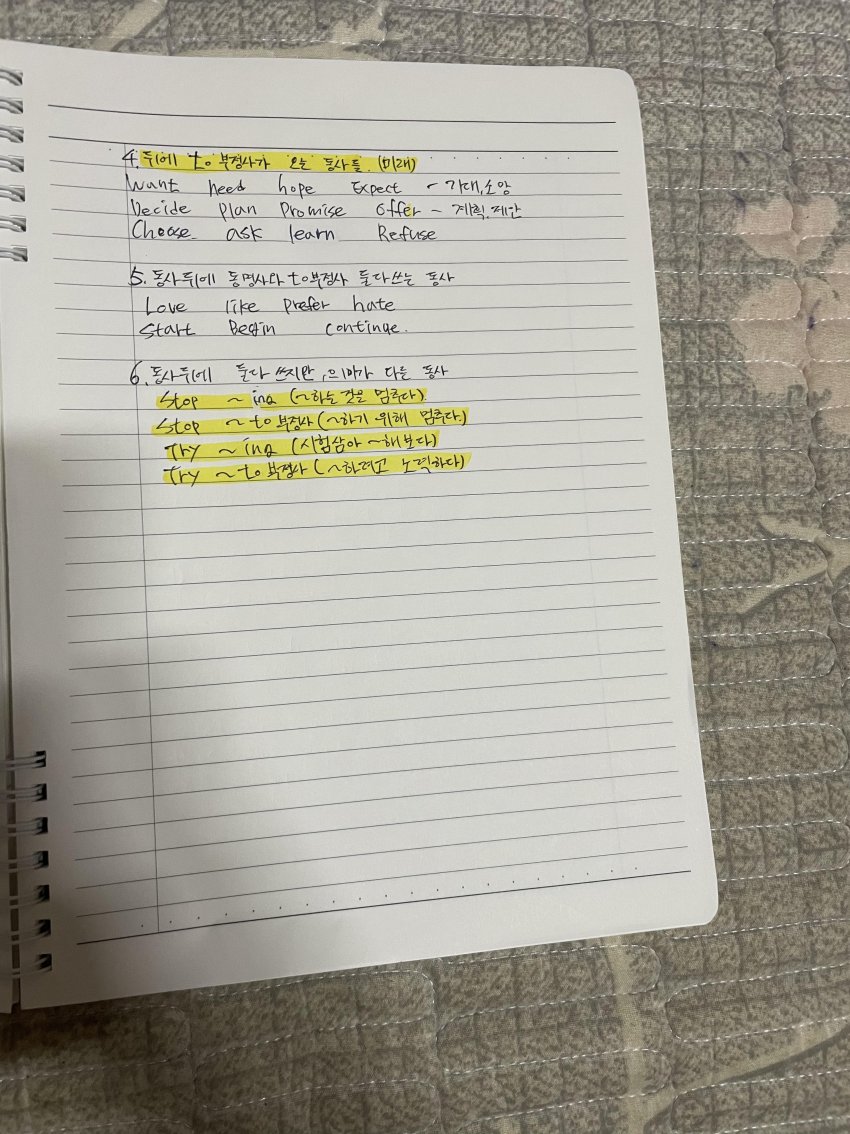 4. 뒤에 to 부정사가 오는 동사들. (미래)
Want need hope Expect - 기대, 소망
Decide Plan Promise Offer - 계획, 제안
Choose ask learn Refuse
5. 동사 뒤에 동명사와 to부정사 둘다쓰는 동사
Love like prefer hate
Start Begin continue.
6. 동사뒤에 둘다 쓰지만, 의미가 다른 동사
Stop ~ ing (~하는 것을 멈추다)
Stop ~ to 부정사 (~하기 위해 멈추다.)
Try ~ ing (시험삼아 ~해보다)
Try ~ to 부정사 (~하려고 노력하다)